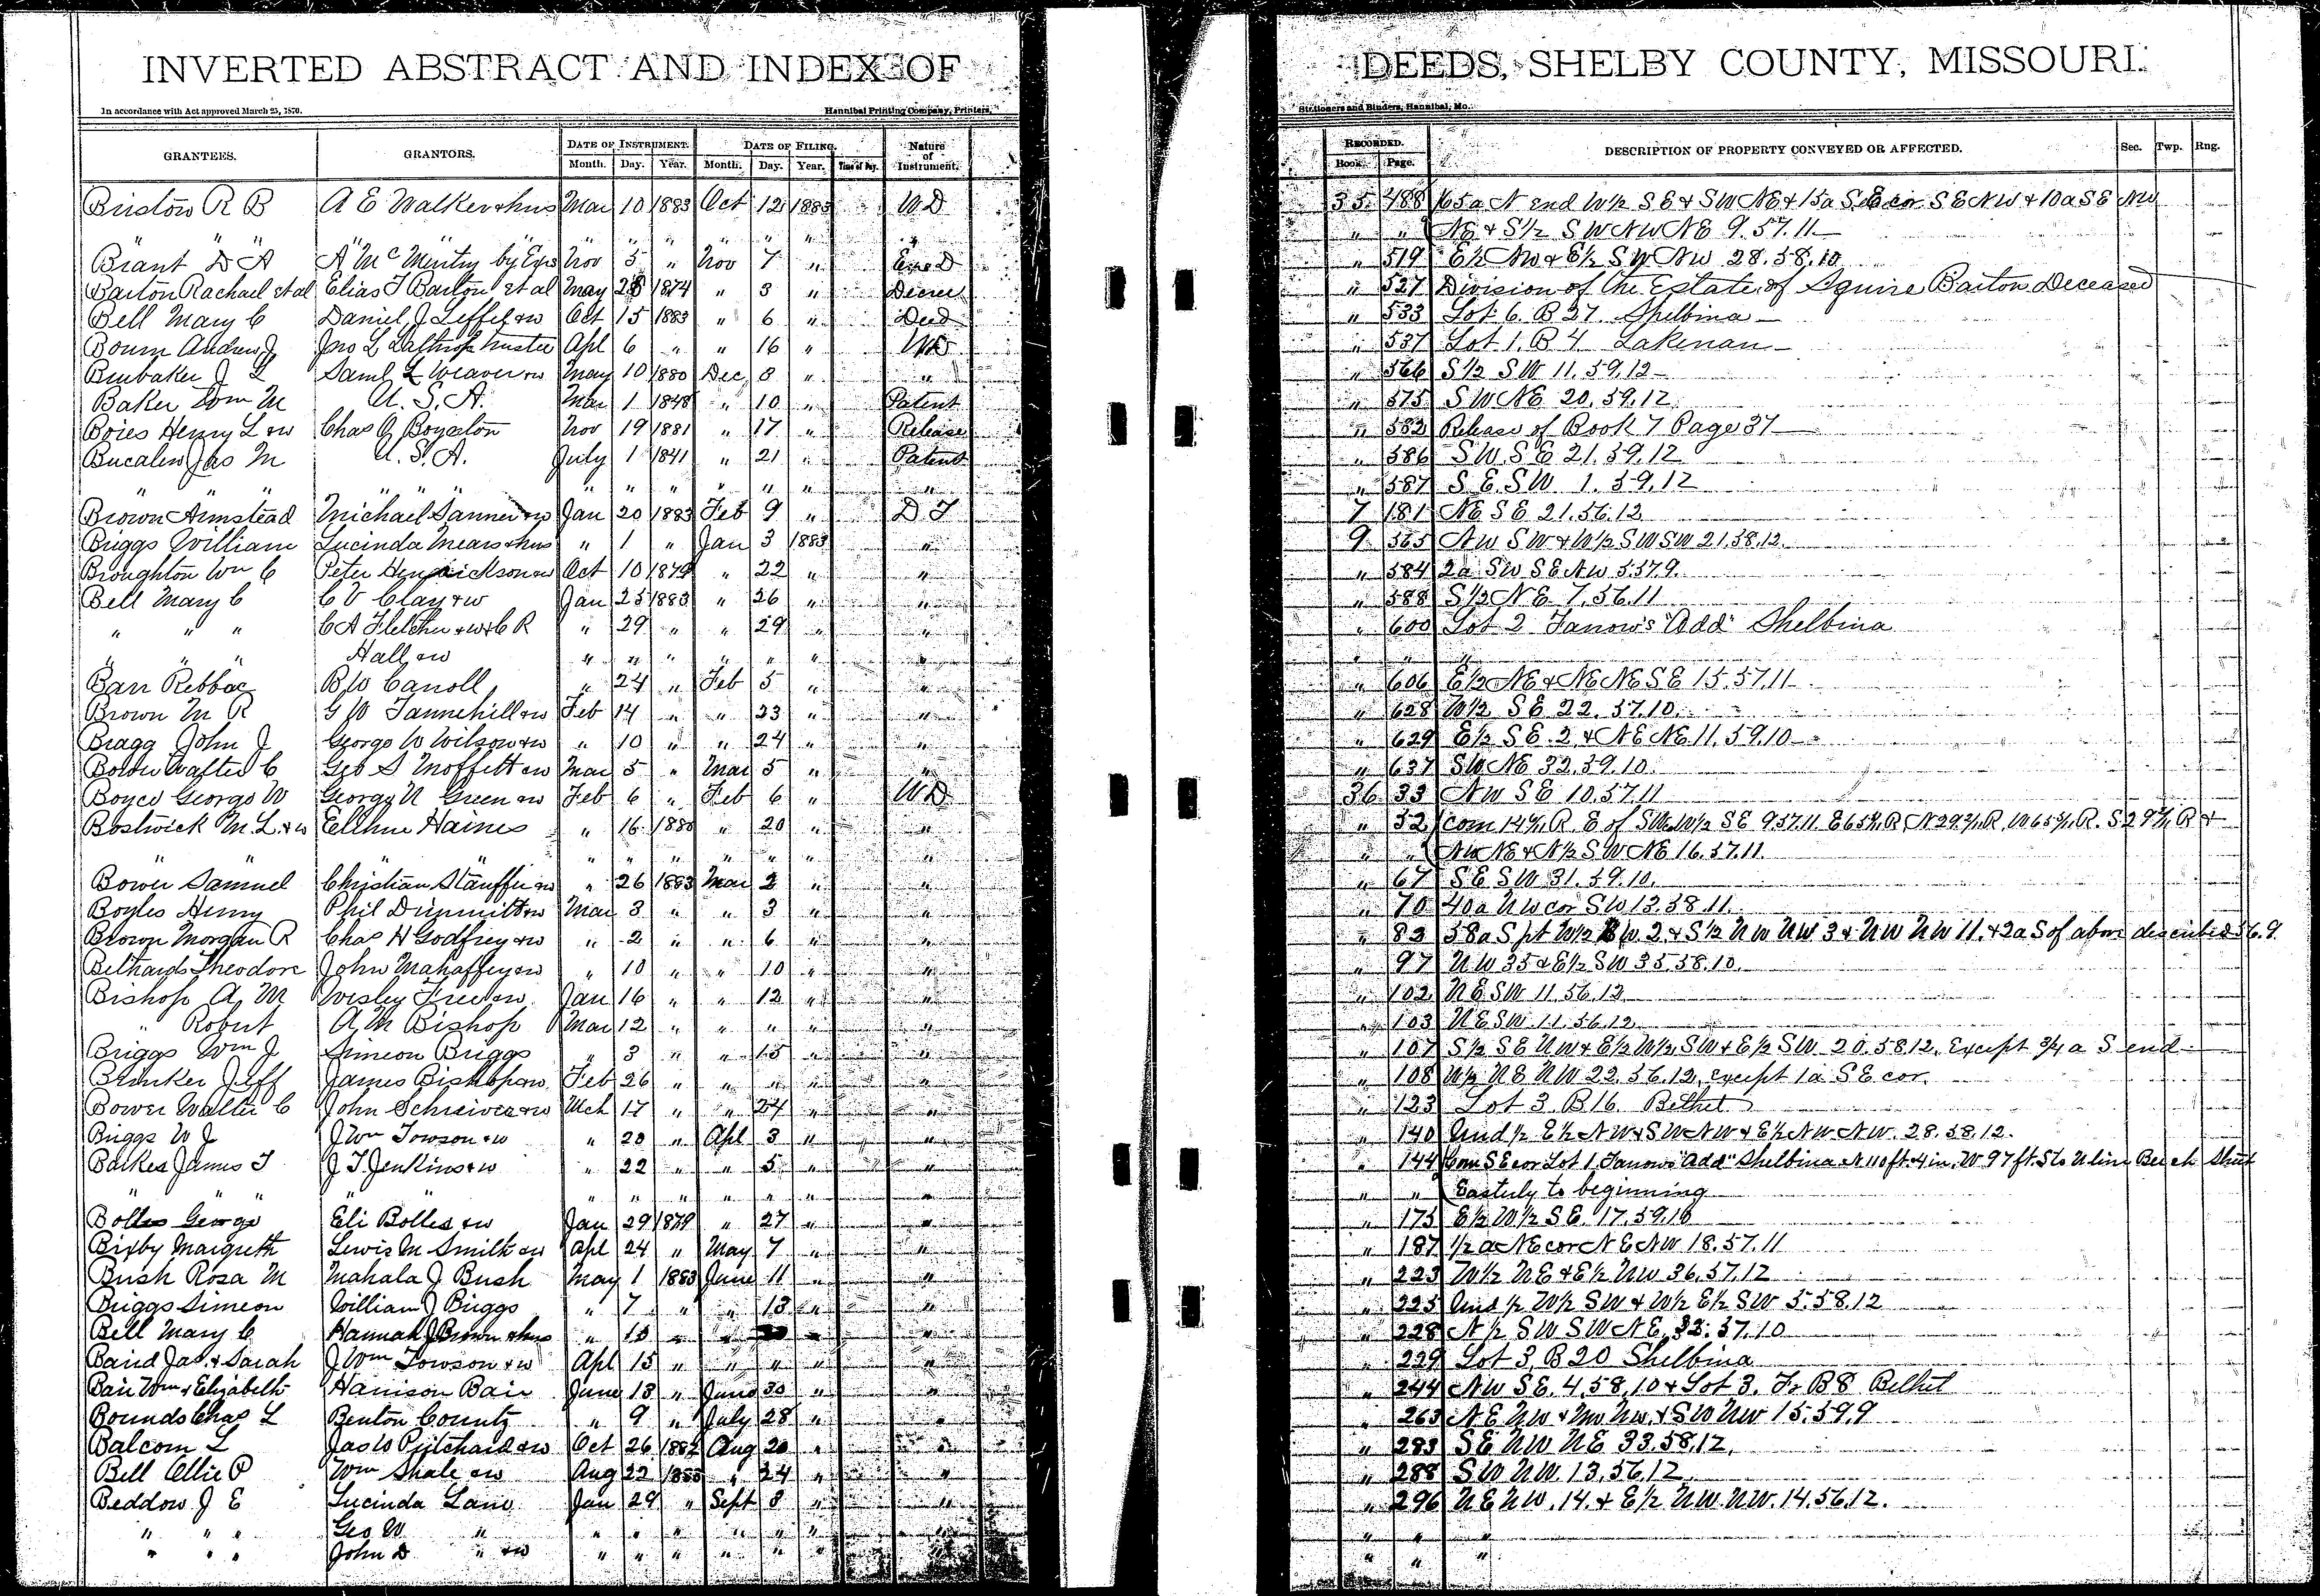 INVERTED ABSTRACT AND INDEX OF DEEDS, SHELBY COUNTY, MISSOURI.
In accordance with Act approved March 25, 1870. Hannibal Printing Company, Printers, Stationers and Binders, Hannibal, Mo.
GRANTEES. GRANTORS. DATE OF INSTRUMENT. DATE OF FILING. Nature of Instrument. RECORDED. DESCRIPTION OF PROPERTY CONVEYED OR AFFECTED. Sec. Twp. Rng.
Month. Day. Year. Month. Day. Year. Time of Day. Book. Page.
Bristow R B A E Walker & hus Mar 10 1883 Oct 12 1883 W D 35 488 65a N end W½ S E & S W N E & 15a S.E cor S E N W & 10a S E NW
" " " " " " " " " " " " N E & S½ S W N W N E 9.57.11
Brant D A A McMurtry by Exrs Nov 5 " Nov 7 " Exrs D " 519 E½ NW & E½ S W NW 28.58.10
Barton Rachael et al Elias T Barton et al May 28 1874 " 3 " Decree " 527 Division of the Estate of Squire Barton Deceased
Bell Mary C Daniel J Leffel & w Oct 15 1883 " 6 " Deed " 533 Lot 6 B 27 Shelbina
Bourn Andrew J Jno L Lathrop trustee Apl 6 " " 16 " WD " 537 Lot 1, B 4 Lakenan
Brubaker J L Saml L Weaver & w May 10 1880 Dec 8 " " " 566 S½ S W 11.59.12
Baker Wm M U. S. A. Mar 1 1848 " 10 " Patent " 575 S W N E 20.59.12
Boies Henry L & w Chas A Boynton Nov 19 1881 " 17 " Release " 582 Release of Book 7 Page 37
Jas M U. S. A. July 1 1841 " 21 " Patent " 586 S W. S E 21.59.12
" " " " " " " " " " " 587 S. E. S W 1.59.12
Brown Armstead Michael Sanner & w Jan 20 1883 Feb 9 " D T 7 181 N E S E 21.56.12
Briggs William Lucinda Mears & hus " 1 " Jan 3 1883 " 9 565 N W S W & W½ S W S W 21.58.12
Broughton Wm C Peter Henrickson & w Oct 10 1879 " 22 " " " 584 2a S W S E N W 5.57.9
Bell Mary C C V Clay & w Jan 25 1883 " 26 " " " 588 S½ N E 7.56.11
" " " C A Fletcher & w & C R " 29 " " 29 " " " 600 Lot 2 Tanows "Add" Shelbina
" " " Hall & w " " " " " " " " " "
Barr B W Carroll " 24 " Feb 5 " " " 606 E½ N E & N E N E S E 15.57.11
Brown M R G W Tannehill & w Feb 14 " " 23 " " " 628 W½ S E 22.57.10
Bragg John J George W Wilson & w " 10 " " 24 " " " 629 E½ S E 2 & N E N E 11.59.10
Bower Walter C Geo S Moffett & w Mar 5 " Mar 5 " " " 637 S W N E 32.59.10
Boyce George W George N Green & w Feb 6 " Feb 6 " W D 36 33 N W S E 10.57.11
Bostwick M. L. & w Ellhue Haines " 16 1880 " 20 " " " 52
" " " " " " " " " " " " N W N E & N½ S W N E 16.57.11
Bower Samuel Christian Stauffer & w " 26 1883 Mar 2 " " " 67 S E S W 31.59.10
Boyles Henry Phil Dimmitt & w Mar 3 " " 3 " " " 70 40a N W cor S W 13.58.11
Brown Morgan R Chas H Godfrey & w " 2 " " 6 " " " 82 58a S pt W½ S W 2 & S½ N W N W 3 & N W N W 11. & 2a S of above described 56.9
Bethards Theodore John Mahaffey & w " 10 " " 10 " " " 97 N W 35 & E½ S W 35.58.10
Bishop A. M Wesley Freer & w Jan 16 " " 12 " " " 102 N E S W 11.56.12
" Robert A. M Bishop Mar 12 " " " " " " 103 N E S W 11.56.12
Briggs Wm J Simeon Briggs " 3 " " 15 " " " 107 S½ S E N W & E½ W½ S W & E½ S W 20.58.12, Except ¾ a S end
Brinker Jeff James Bishop & w Feb 26 " " " " " " 108 W½ N E N W 22.56.12, except 1a S E cor.
Bower Walter C John Schreiver & w Mch 17 " " 24 " " " 123 Lot 3 B 16 Bethel
Briggs W J J Wm Towson & w " 20 " Apl 3 " " " 140 Und ½ E½ N W & S W N W & E½ N W N W 28.58.12.
Barkes James T J T Jenkins & w " 22 " " 5 " " " 144 Com S E cor Lot 1 Tanows "Add" Shelbina N 110 ft. 4 in. W 97 ft. S to N line Beech Street
" " " " " " " " " " " " Easterly to beginning
Bolles George Eli Bolles & w Jan 29 1879 " 27 " " " 175 E½ W½ S E 17.59.10
Bixby Margreth Lewis M Smith & w Apl 24 " May 7 " " " 187 ½ a N E cor N E N W 18.57.11
Bush Rosa M Mahala J Bush May 1 1883 June 11 " " " 223 W½ N E & E½ N W 36.57.12
Briggs Simeon William J Briggs " 7 " " 13 " " " 225 Und ½ W½ S W & W½ E½ S W 5.58.12
Bell Mary C Hannah J Brown & hus " 15 " " " " " 228 N½ S W S W N E 33.57.10
Baird Jas. & Sarah J Wm Towson & w Apl 15 " " " " " " 229 Lot 3, B 20 Shelbina
Bair Wm & Elizabeth Harrison Bair June 13 " June 30 " " " 244 N W S E 4.58.10 & Lot 3. Fr B 8 Bethel
Bounds Chas L Benton County " 9 " July 28 " " " 263 N E N W & N W N W & S W N W 15.59.9
Balcom L Jas W Pritchard & w Oct 26 1882 Aug 20 " " " 283 S E N W N E 33.58.12.
Bell Ollie P Wm Shale & w Aug 22 1883 " 24 " " " 288 S W N W 13.56.12
Beddow J E Lucinda Lane Jan 29 " Sept 8 " " " 296 N E N W 14. & E½ N W N W 14.56.12.
" " " Geo W " " " " " " " " " " "
" " " John D " & w " " " " " " " " " "